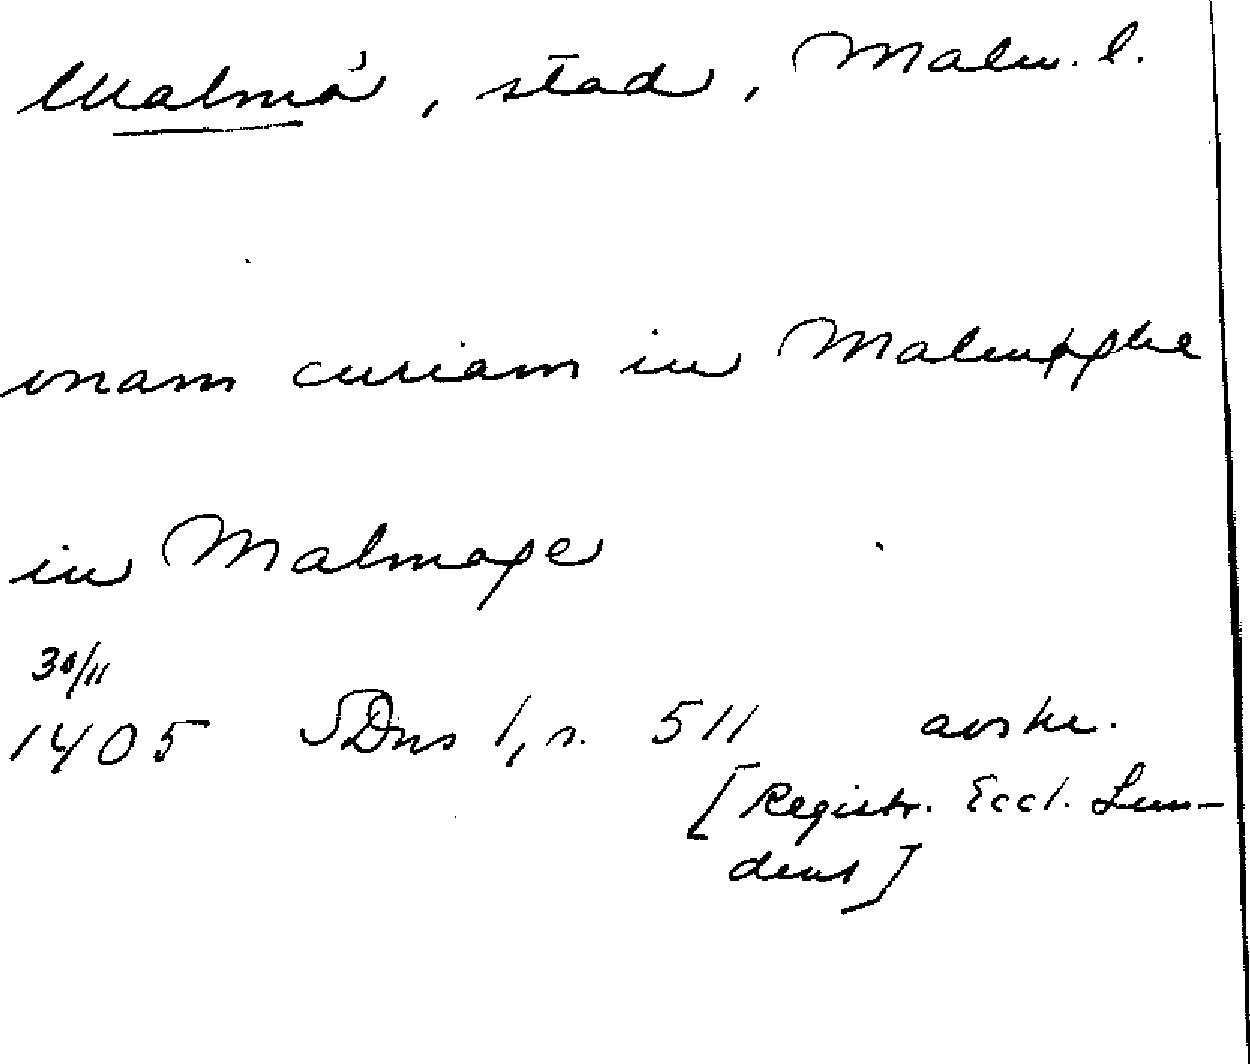 Malmö, stad, Malm. l.
unam curiam in Malmøghe
in Malmoye
30/11
1405 SDns 1, s. 511 avskr.
[Registr. Eccl. Lun-
dens]